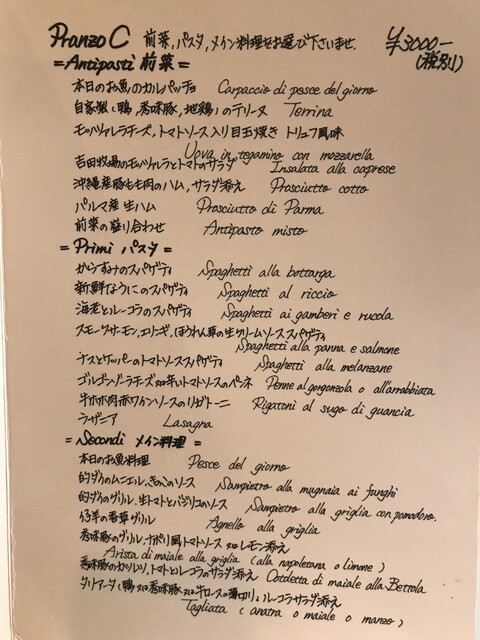 Pranzo C 前菜,パスタ,メイン料理をお選び下さいませ. ¥3000-
(税別)
= Antipasti 前菜 =
本日のお魚のカルパッチョ Carpaccio di pesce del giorno
自家製(鴨,香味豚,地鶏)のテリーヌ Terrina
モッツァレラチーズ,トマトソース入り目玉焼き トリュフ風味
Uova in tegamino con mozzarella
吉田牧場のモッツァレラとトマトのサラダ Insalata alla caprese
沖縄産豚もも肉のハム,サラダ添え Prosciutto cotto
パルマ産生ハム Prosciutto di Parma
前菜の盛り合わせ Antipasto misto
= Primi パスタ =
からすみのスパゲティ Spaghetti alla bottarga
新鮮なうにのスパゲティ Spaghetti al riccio
海老とルーコラのスパゲティ Spaghetti ai gamberi e rucola
スモークサーモン,エリンギ,ほうれん草の生クリームソーススパゲティ
Spaghetti alla panna e salmone
ナスとケッパーのトマトソーススパゲティ Spaghetti alla melanzane
ゴルゴンゾーラチーズor辛いトマトソースのペンネ Penne al gorgonzola o all'arrabbiata
牛ホホ肉赤ワインソースのリガトーニ Rigatoni al sugo di guancia
ラザニア Lasagna
= Secondi メイン料理 =
本日のお魚料理 Pesce del giorno
的ダイのムニエル,きのこのソース Sampietro alla mugnaia ai funghi
的ダイのグリル,生トマトとバジリコのソース Sampietro alla griglia con pomodoro.
仔羊の香草グリル Agnello alla griglia
香味豚のグリル,ナポリ風トマトソース orレモン添え
Arista di maiale alla griglia (alla napoletana o limone)
香味豚のカツレツ,トマトとルーコラのサラダ添え Cotoletta di maiale alla Bettola
タリアータ(鴨 or香味豚 or牛ロースの薄切り),ルーコラサラダ添え
Tagliata (anatra o maiale o manzo)